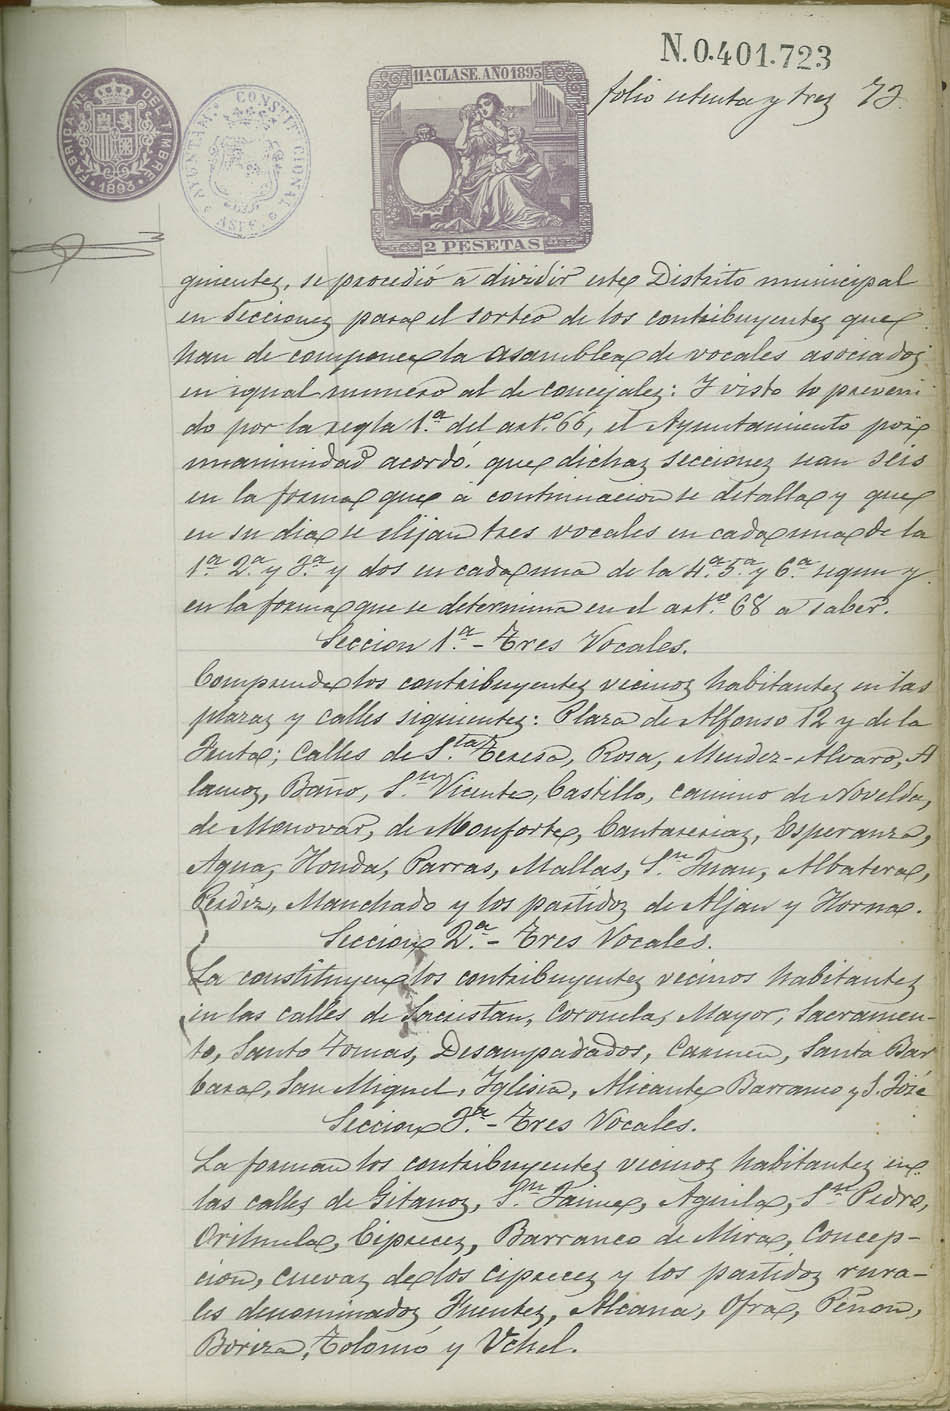 N.0.401.723
11ª CLASE. AÑO 1893
folio setenta y tres 73.
FABRICA NAL. DEL TIMBRE
1893
AYUNTAMº CONSTITUCIONAL
ASPE
2 PESETAS
guientes, se procedió á dividir este Distrito municipal
en Secciones para el sorteo de los contribuyentes que
han de componer la asamblea de vocales asociados
en igual numero al de concejales: Y visto lo preveni
do por la regla 1ª. del artº. 66, el Ayuntamiento por
unanimidad acordó. que dichas secciones sean seis
en la forma que á continuacion se detalla y que
en su dia se elijan tres vocales en cada una de la
1ª. 2ª. y 3ª. y dos en cada una de la 4ª. 5ª. y 6ª. segun y
en la forma que se determina en el artº. 68 á saber.
Seccion 1ª. - Tres Vocales.
Comprende los contribuyentes vecinos habitantes en las
plazas y calles siguientes: Plaza de Alfonso 12 y de la
Fruta; Calles de Sta. Teresa, Rosa, Mendez-Alvaro, A
lamos, Baño, Sn. Vicente, Castillo, camino de Novelda,
de Monovar, de Monforte, Cantarerias, Esperanza,
Agua, Honda, Parras, Mallas, Sn. Juan, Albatera,
Perdiz, Manchado y los partidos de Aljau y Horna.
Seccion 2ª. - Tres Vocales.
La constituyen los contribuyentes vecinos habitantes
en las calles de Sacristan, Coronela, Mayor, Sacramen-
to, Santo Tomas, Desamparados, Carmen, Santa Bar
bara, San Miguel, Iglesia, Alicante Barranco y S. José
Seccion 3ª. - Tres Vocales.
La forman los contribuyentes vecinos habitantes en
las calles de Gitanos, Sn. Jaime, Aguila, Sn. Pedro,
Orihuela, Cipreces, Barranco de Mira, Concep-
cion, cuevas de los cipreces y los partidos rura-
les denominados Fuentes, Alcana, Ofra, Peñon,
Boriza, Tolomó y Uchel.